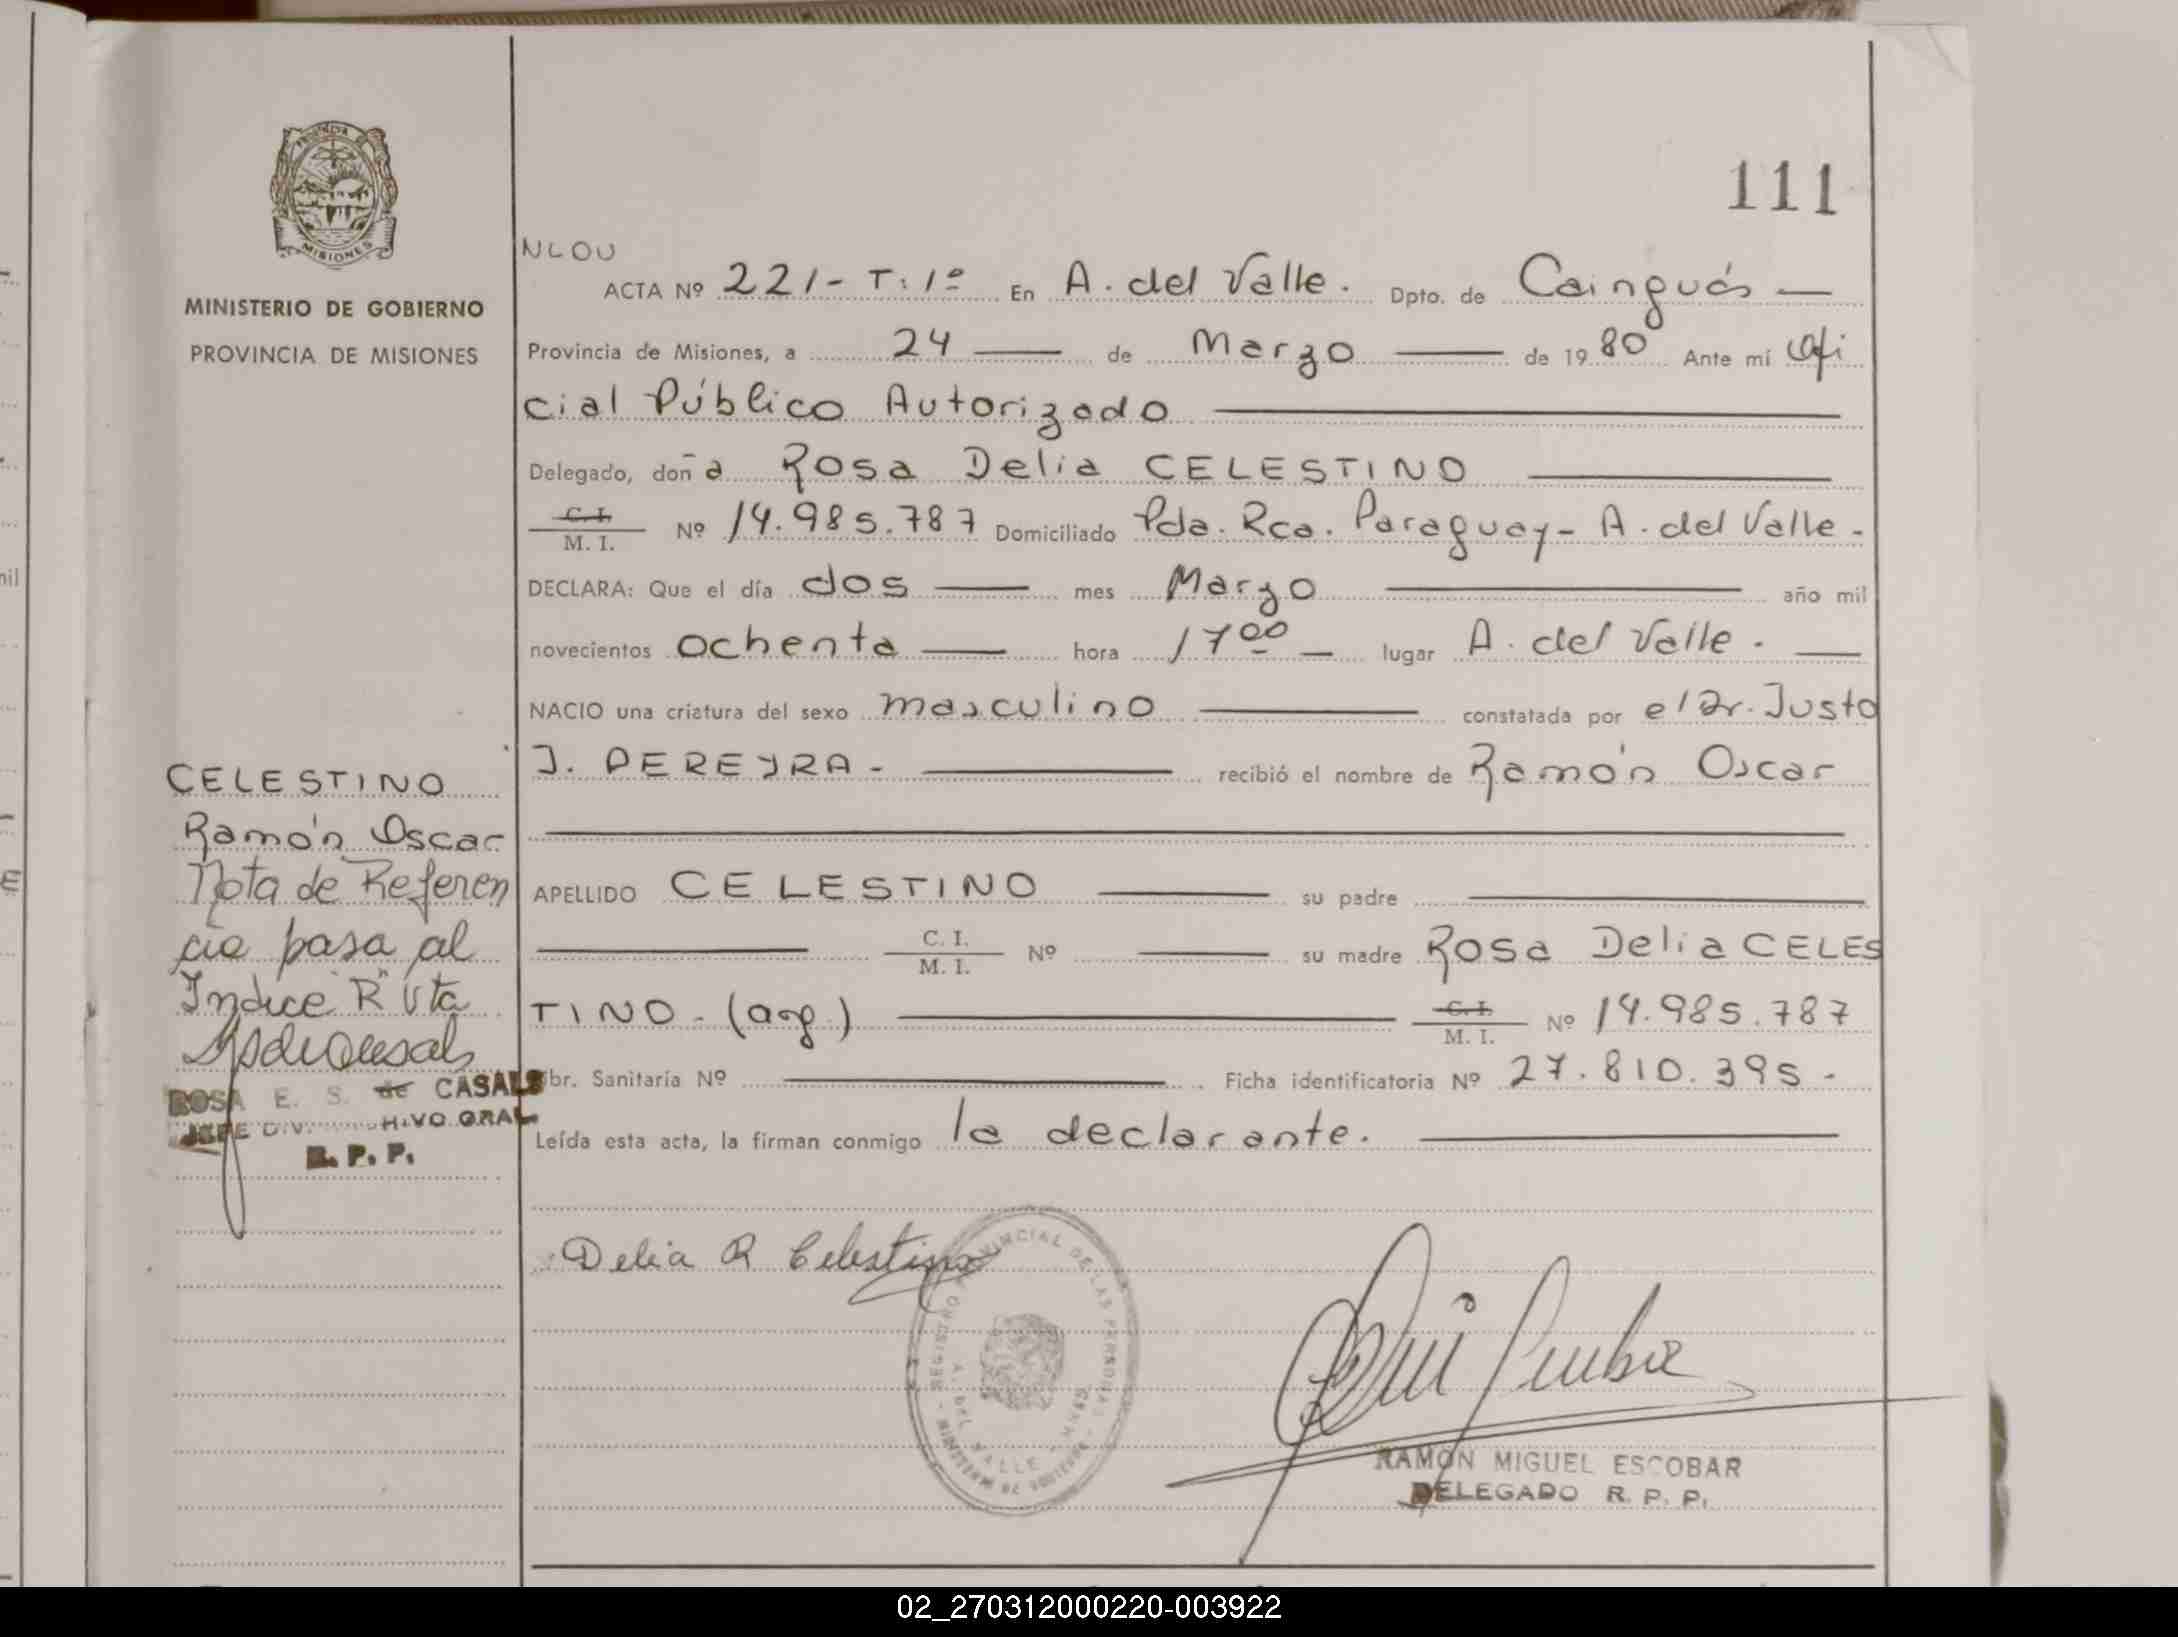 111
PROVINCIA DE
MISIONES
MINISTERIO DE GOBIERNO
PROVINCIA DE MISIONES
NLOU
ACTA Nº 221- T: 1º En A. del Valle. Dpto. de Cainguás —
Provincia de Misiones, a 24 — de Marzo — de 19 80 Ante mí Ofi
cial Público Autorizado —
Delegado, doña Rosa Delia CELESTINO —
C. I. / M. I. Nº 14.985.787 Domiciliado Pda. Rca. Paraguay - A. del Valle -
DECLARA: Que el día dos — mes Marzo — año mil
novecientos ochenta — hora 17 00 — lugar A. del Valle. —
NACIO una criatura del sexo masculino — constatada por el Dr. Justo
J. PEREYRA - — recibió el nombre de Ramón Oscar
APELLIDO CELESTINO — su padre —
— C. I. / M. I. Nº — su madre Rosa Delia CELES
TINO - (arg.) — C. I. / M. I. Nº 14.985.787
br. Sanitaría Nº — Ficha identificatoria Nº 27.810.395 -
Leída esta acta, la firman conmigo la declarante. —
CELESTINO
Ramón Oscar
Nota de Referen
cia pasa al
Indice "R" Vta
ROSA E. S. de CASALS
JEFE DIV. HIVO GRAL
R. P. P.
Delia R Celestino
REGISTRO PROVINCIAL DE LAS PERSONAS
A. DEL VALLE - MNES
RAMON MIGUEL ESCOBAR
DELEGADO R. P. P.
mil
E
02_270312000220-003922